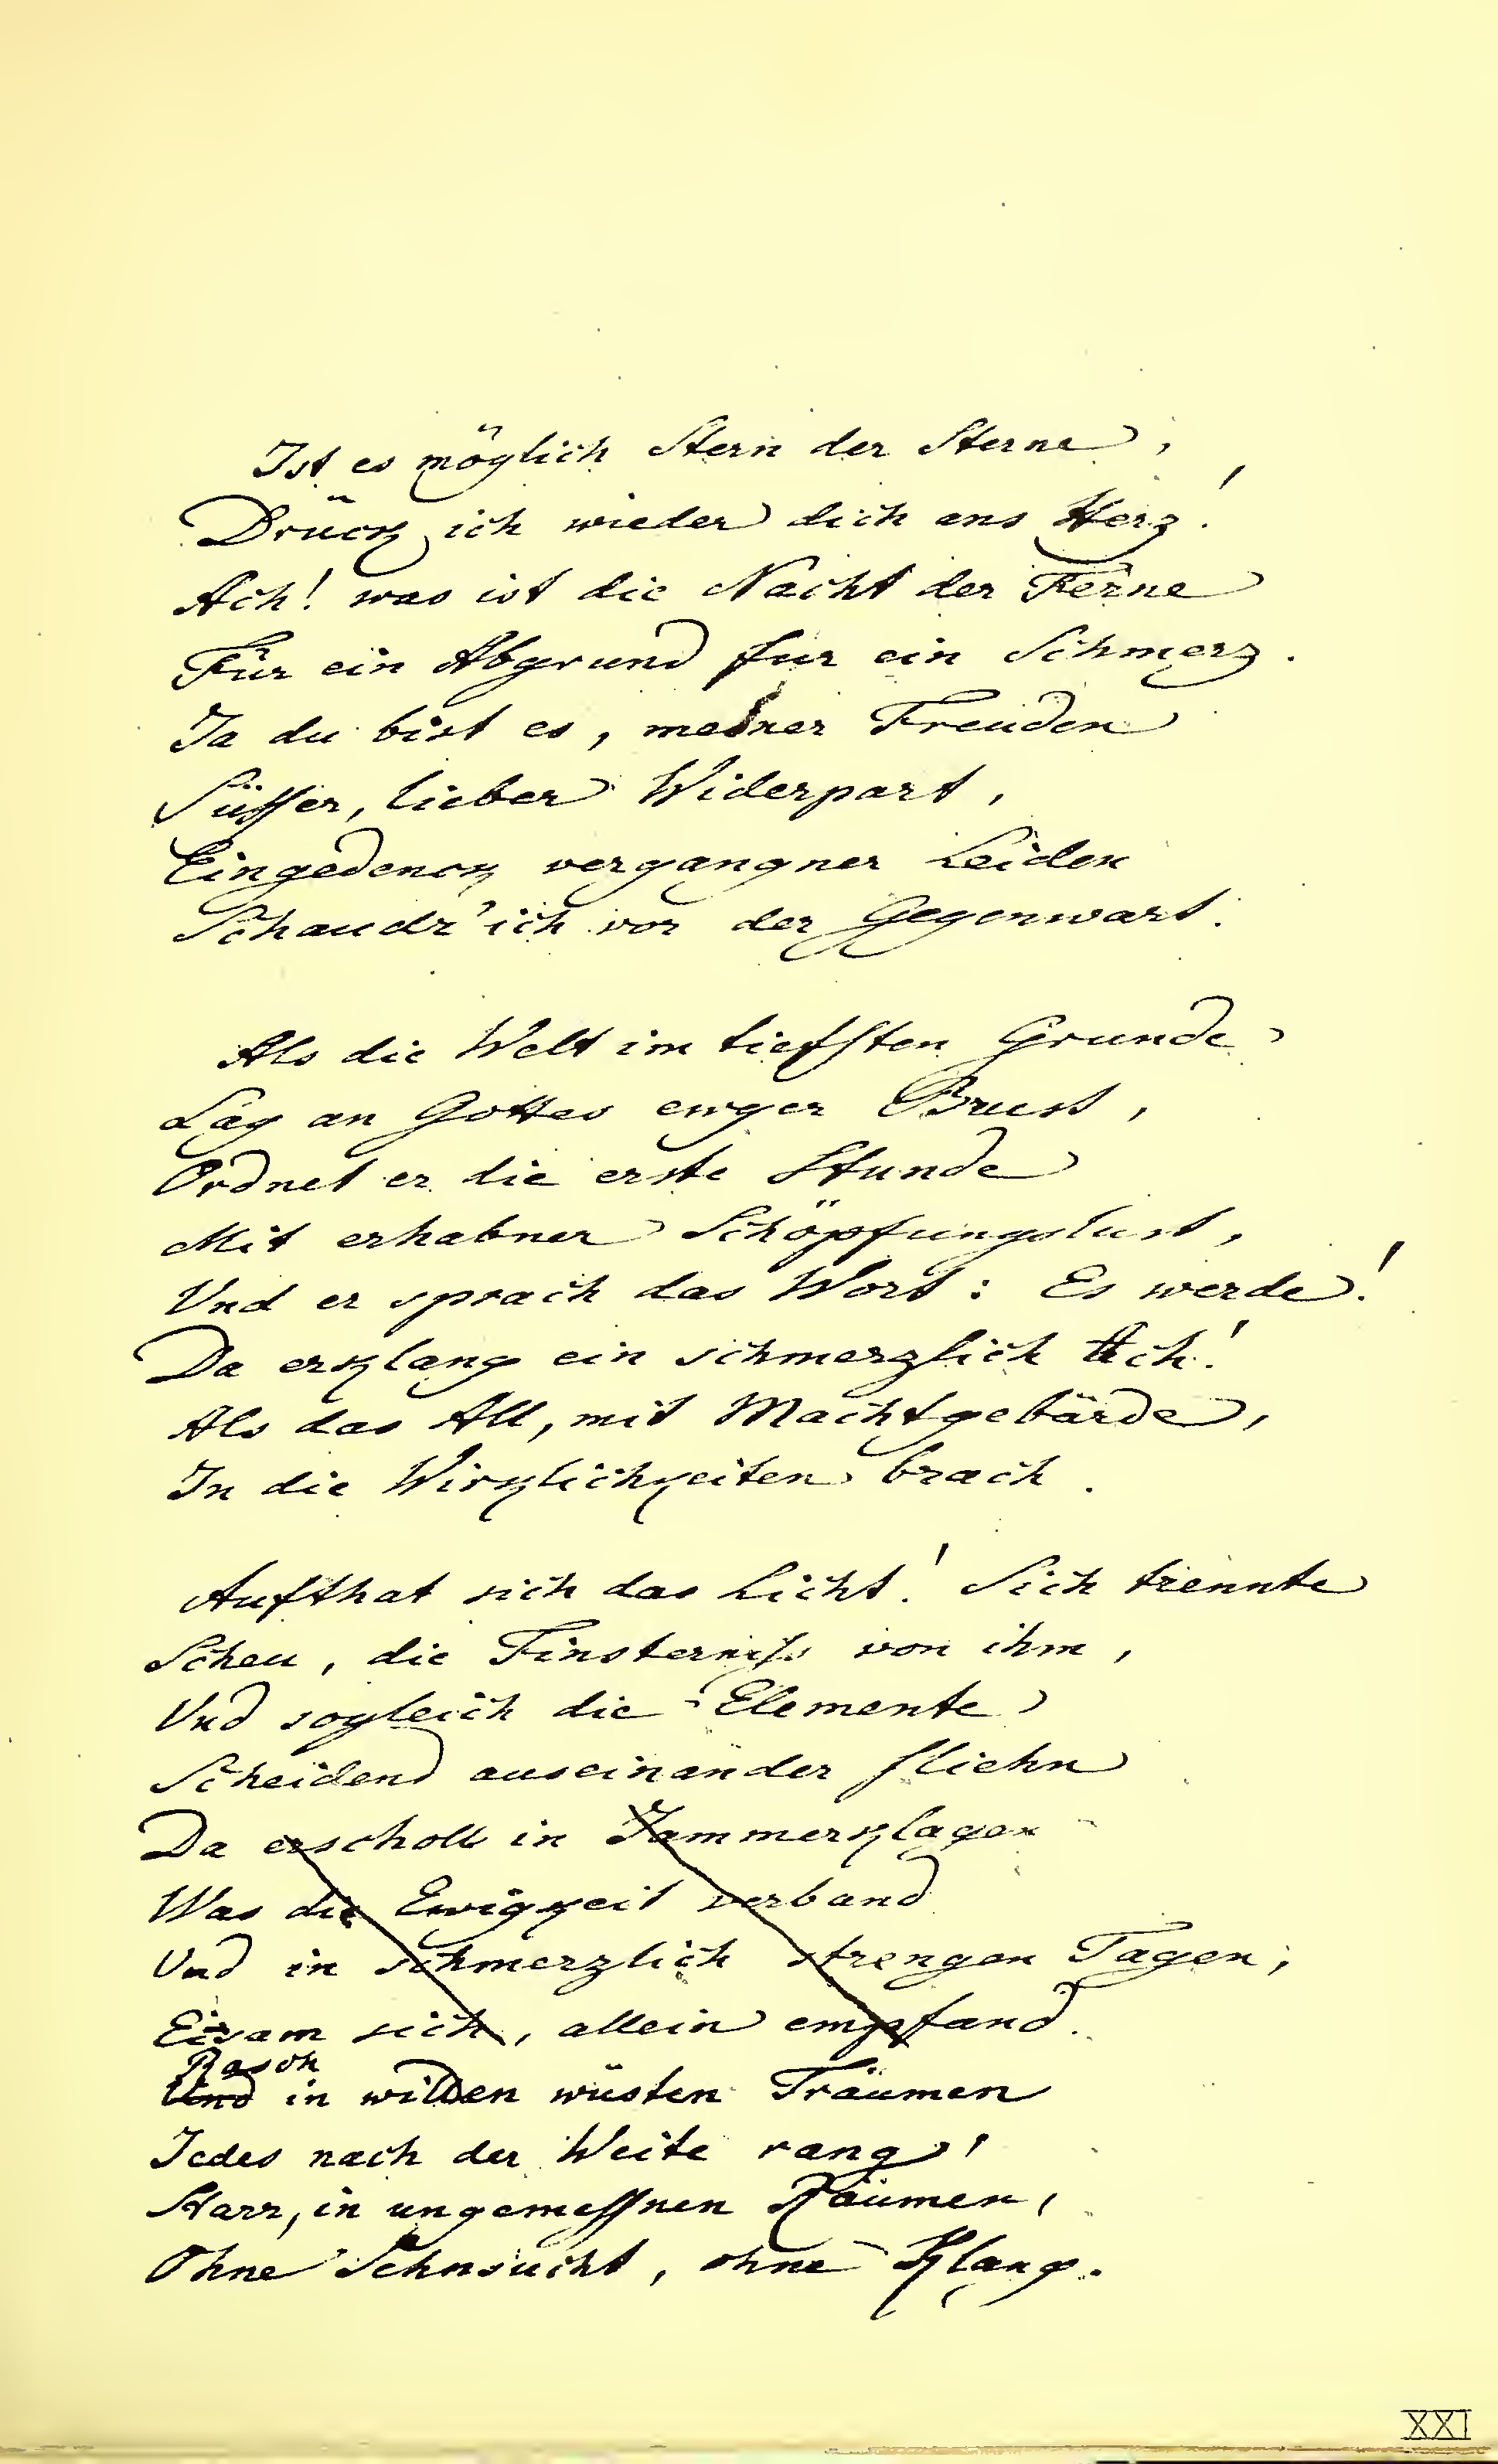 Ist es möglich Stern der Sterne,
Drück ich wieder dich ans Herz!
Ach! was ist die Nacht der Ferne
Für ein Abgrund fur ein Schmerz.
Ja du bist es, meiner Freuden
Süsser, lieber Widerpart,
Eingedenck vergangner Leiden
Schaudr' ich vor der Gegenwart.
Als die Welt im tiefsten Grunde
Lag an Gottes ewger Brust,
Ordnet er die erste Stunde
Mit erhabner Schöpfungslust,
Und er sprach das Wort: Es werde!
Da erklang ein schmerzlich Ach!
Als das All, mit Machtgebärde,
In die Wirklichkeiten brach.
Aufthat sich das Licht! Sich trennte
Scheu, die Finsterniss von ihm,
Und sogleich die Elemente
Scheidend auseinander fliehn
Da erscholl in Jammerklagen
Was die Ewigkeit verband
Und in schmerzlich strengen Tagen,
Einsam sich, allein empfand.
Rasch
Und in wilden wüsten Träumen
Jedes nach der Weite rang,
Starr, in ungemessnen Räumen,
Ohne Sehnsucht, ohne Klang.
XXI